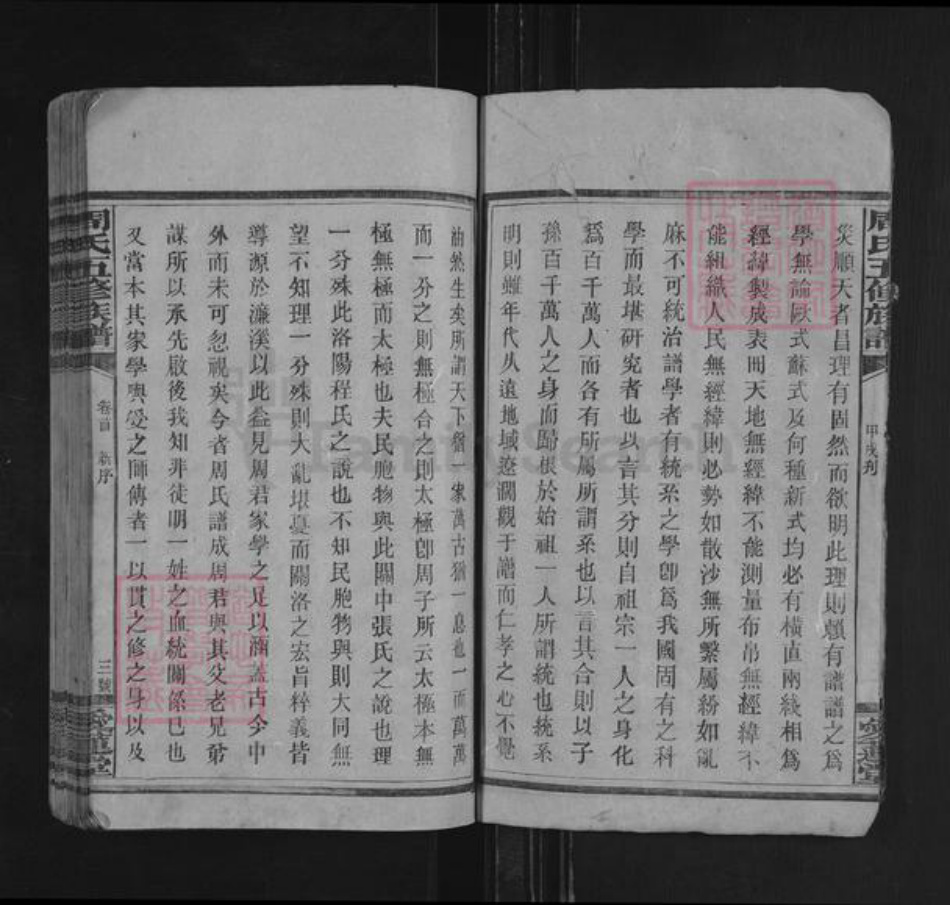 周氏五修族譜
甲戌刋
愛蓮堂
災順天者昌理有固然而欲明此理則賴有譜譜之爲
學無論歐式蘇式及何種新式均必有橫直兩綫相爲
經緯製成表間天地無經緯不能測量布帛無經緯不
能組織人民無經緯則必勢如散沙無所繫屬紛如亂
麻不可統治譜學者有統系之學卽爲我國固有之科
學而最堪研究者也以言其分則自祖宗一人之身化
爲百千萬人而各有所屬所謂系也以言其合則以子
孫百千萬人之身而歸根於始祖一人所謂統也統系
明則雖年代久遠地域遼濶觀于譜而仁孝之心不覺
油然生矣所謂天下猶一家萬古猶一息也一而萬萬
而一分之則無極合之則太極卽周子所云太極本無
極無極而太極也夫民胞物與此關中張氏之說也理
一分殊此洛陽程氏之說也不知民胞物與則大同無
望不知理一分殊則大亂堪憂而關洛之宏旨粹義皆
導源於濂溪以此益見周君家學之足以涵蓋古今中
外而未可忽視矣今者周氏譜成周君與其父老兄弟
謀所以承先啟後我知非徒明一姓之血統關係已也
又當本其家學與受之師傳者一以貫之修之身以及
周氏五修族譜
卷首 新序
三號
愛蓮堂
FamilySearch